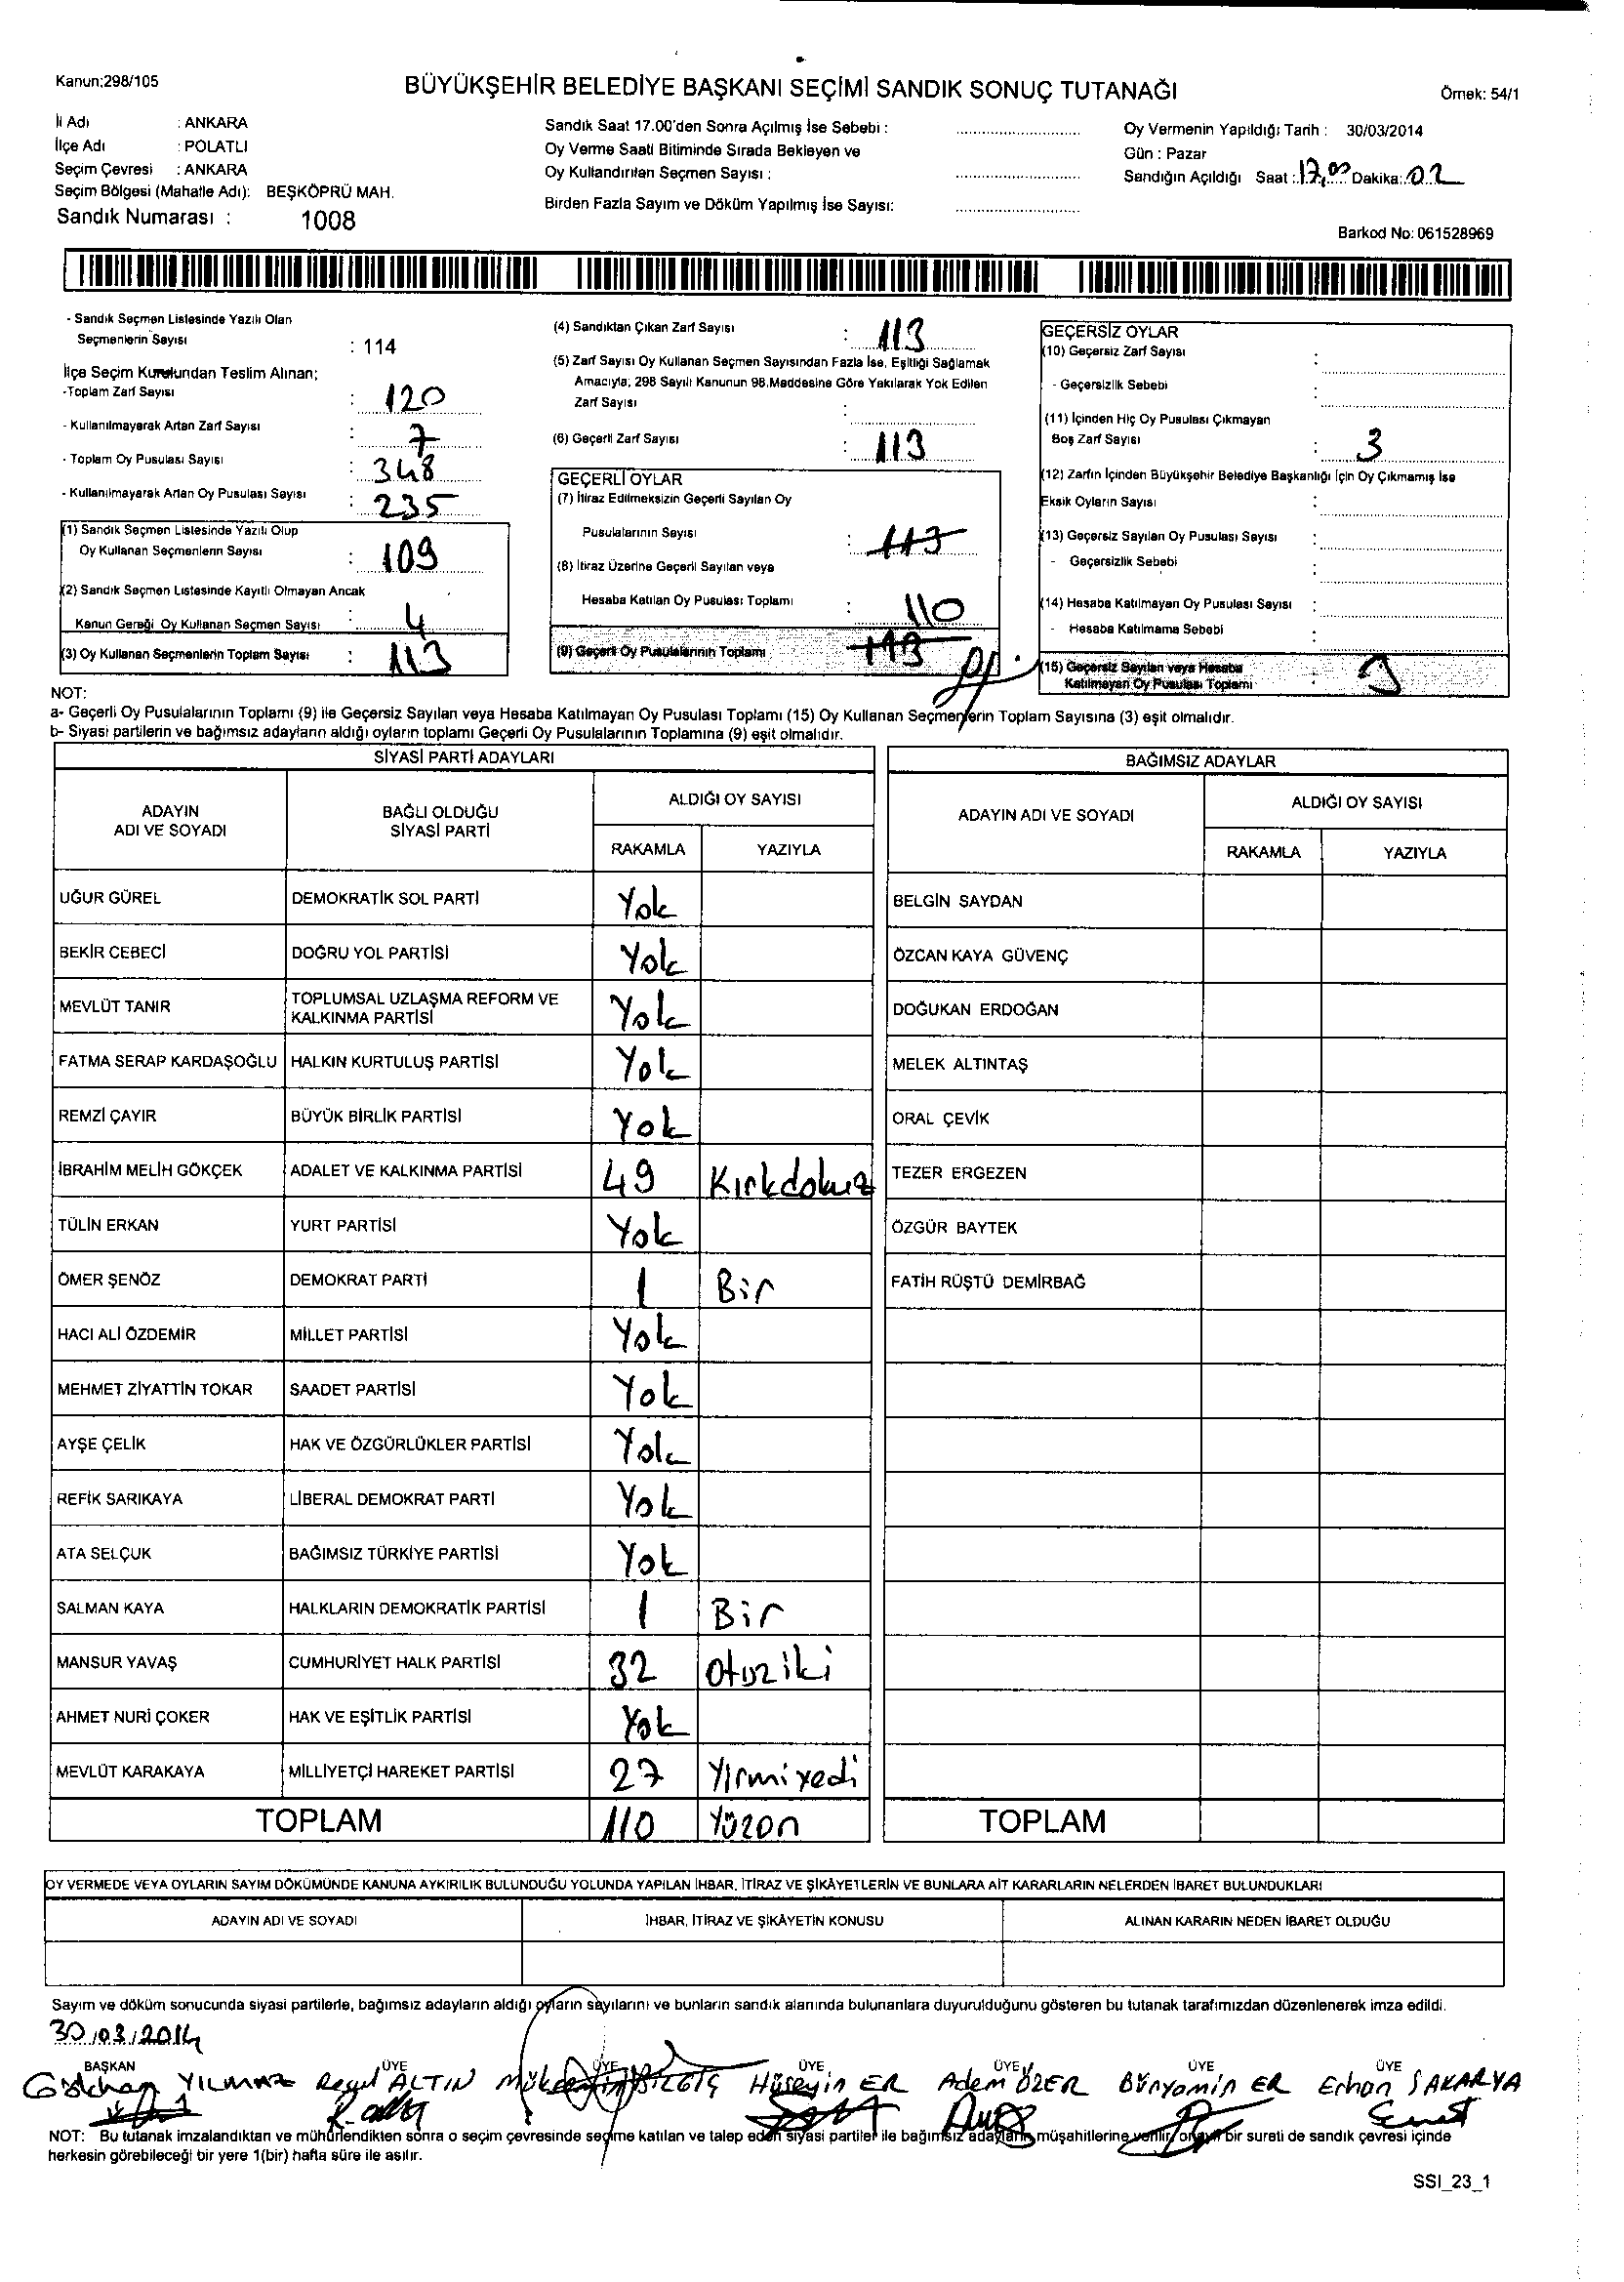 Kanun:298/105
BÜYÜKŞEHİR BELEDİYE BAŞKANI SEÇİMİ SANDIK SONUÇ TUTANAĞI
Örnek: 54/1
İl Adı : ANKARA
İlçe Adı : POLATLI
Seçim Çevresi : ANKARA
Seçim Bölgesi (Mahalle Adı): BEŞKÖPRÜ MAH.
Sandık Numarası : 1008
Sandık Saat 17.00'den Sonra Açılmış İse Sebebi :
Oy Verme Saati Bitiminde Sırada Bekleyen ve
Oy Kullandırılan Seçmen Sayısı :
Birden Fazla Sayım ve Döküm Yapılmış İse Sayısı:
Oy Vermenin Yapıldığı Tarih : 30/03/2014
Gün : Pazar
Sandığın Açıldığı Saat : 17,00 Dakika: 02
Barkod No: 061528969
- Sandık Seçmen Listesinde Yazılı Olan
Seçmenlerin Sayısı : 114
İlçe Seçim Kurulundan Teslim Alınan;
-Toplam Zarf Sayısı : 120
- Kullanılmayarak Artan Zarf Sayısı : 7
- Toplam Oy Pusulası Sayısı : 348
- Kullanılmayarak Artan Oy Pusulası Sayısı : 235
(1) Sandık Seçmen Listesinde Yazılı Olup
Oy Kullanan Seçmenlerin Sayısı : 109
(2) Sandık Seçmen Listesinde Kayıtlı Olmayan Ancak
Kanun Gereği Oy Kullanan Seçmen Sayısı : 4
(3) Oy Kullanan Seçmenlerin Toplam Sayısı : 113
(4) Sandıktan Çıkan Zarf Sayısı : 113
(5) Zarf Sayısı Oy Kullanan Seçmen Sayısından Fazla İse, Eşitliği Sağlamak
Amacıyla; 298 Sayılı Kanunun 98.Maddesine Göre Yakılarak Yok Edilen
Zarf Sayısı :
(6) Geçerli Zarf Sayısı : 113
GEÇERLİ OYLAR
(7) İtiraz Edilmeksizin Geçerli Sayılan Oy
Pusulalarının Sayısı : 113
(8) İtiraz Üzerine Geçerli Sayılan veya
Hesaba Katılan Oy Pusulası Toplamı : 110
(9) Geçerli Oy Pusulalarının Toplamı 113
GEÇERSİZ OYLAR
(10) Geçersiz Zarf Sayısı :
- Geçersizlik Sebebi :
(11) İçinden Hiç Oy Pusulası Çıkmayan
Boş Zarf Sayısı : 3
(12) Zarfın İçinden Büyükşehir Belediye Başkanlığı İçin Oy Çıkmamış İse
Eksik Oyların Sayısı
(13) Geçersiz Sayılan Oy Pusulası Sayısı :
- Geçersizlik Sebebi :
(14) Hesaba Katılmayan Oy Pusulası Sayısı :
- Hesaba Katılmama Sebebi :
(15) Geçersiz Sayılan veya Hesaba
Katılmayan Oy Pusulası Toplamı :
NOT:
a- Geçerli Oy Pusulalarının Toplamı (9) ile Geçersiz Sayılan veya Hesaba Katılmayan Oy Pusulası Toplamı (15) Oy Kullanan Seçmenlerin Toplam Sayısına (3) eşit olmalıdır.
b- Siyasi partilerin ve bağımsız adayların aldığı oyların toplamı Geçerli Oy Pusulalarının Toplamına (9) eşit olmalıdır.
SİYASİ PARTİ ADAYLARI
ADAYIN ADI VE SOYADI BAĞLI OLDUĞU SİYASİ PARTİ ALDIĞI OY SAYISI
RAKAMLA YAZIYLA
UĞUR GÜREL DEMOKRATİK SOL PARTİ Yok
BEKİR CEBECİ DOĞRU YOL PARTİSİ Yok
MEVLÜT TANIR TOPLUMSAL UZLAŞMA REFORM VE KALKINMA PARTİSİ Yok
FATMA SERAP KARDAŞOĞLU HALKIN KURTULUŞ PARTİSİ Yok
REMZİ ÇAYIR BÜYÜK BİRLİK PARTİSİ Yok
İBRAHİM MELİH GÖKÇEK ADALET VE KALKINMA PARTİSİ 49 Kırkdokuz
TÜLİN ERKAN YURT PARTİSİ Yok
ÖMER ŞENÖZ DEMOKRAT PARTİ 1 Bir
HACI ALİ ÖZDEMİR MİLLET PARTİSİ Yok
MEHMET ZİYATTİN TOKAR SAADET PARTİSİ Yok
AYŞE ÇELİK HAK VE ÖZGÜRLÜKLER PARTİSİ Yok
REFİK SARIKAYA LİBERAL DEMOKRAT PARTİ Yok
ATA SELÇUK BAĞIMSIZ TÜRKİYE PARTİSİ Yok
SALMAN KAYA HALKLARIN DEMOKRATİK PARTİSİ 1 Bir
MANSUR YAVAŞ CUMHURİYET HALK PARTİSİ 32 Otuziki
AHMET NURİ ÇOKER HAK VE EŞİTLİK PARTİSİ Yok
MEVLÜT KARAKAYA MİLLİYETÇİ HAREKET PARTİSİ 27 Yirmiyedi
TOPLAM 110 Yüzon
BAĞIMSIZ ADAYLAR
ADAYIN ADI VE SOYADI ALDIĞI OY SAYISI
RAKAMLA YAZIYLA
BELGİN SAYDAN
ÖZCAN KAYA GÜVENÇ
DOĞUKAN ERDOĞAN
MELEK ALTINTAŞ
ORAL ÇEVİK
TEZER ERGEZEN
ÖZGÜR BAYTEK
FATİH RÜŞTÜ DEMİRBAĞ
TOPLAM
OY VERMEDE VEYA OYLARIN SAYIM DÖKÜMÜNDE KANUNA AYKIRILIK BULUNDUĞU YOLUNDA YAPILAN İHBAR, İTİRAZ VE ŞİKÂYETLERİN VE BUNLARA AİT KARARLARIN NELERDEN İBARET BULUNDUKLARI
ADAYIN ADI VE SOYADI İHBAR, İTİRAZ VE ŞİKÂYETİN KONUSU ALINAN KARARIN NEDEN İBARET OLDUĞU
Sayım ve döküm sonucunda siyasi partilerle, bağımsız adayların aldığı oyların sayılarını ve bunların sandık alanında bulunanlara duyurulduğunu gösteren bu tutanak tarafımızdan düzenlenerek imza edildi.
30/03/2014
BAŞKAN ÜYE ÜYE ÜYE ÜYE ÜYE ÜYE
Gökhan YILMAZ ALTIN Hüseyin ER Adem ÖZER Bünyamin ER Erhan SAKARYA
NOT: Bu tutanak imzalandıktan ve mühürlendikten sonra o seçim çevresinde seçime katılan ve talep eden siyasi partiler ile bağımsız adayların müşahitlerine verilir, bir sureti de sandık çevresi içinde
herkesin görebileceği bir yere 1(bir) hafta süre ile asılır.
SSI_23_1